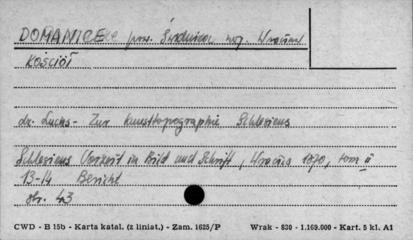 DOMANICE pow. Świdnica woj. Wrocław
KOŚCIÓŁ
dr. Luchs - Zur Kunsttopographie Schlesiens
Schlesiens Vorzeit in Bild und Schrift, Wrocław 1870, tom II
13-14 Bericht
str. 43
CWD - B 15b - Karta katal. (z liniat.) - Zam. 1625/P Wrak - 830 - 1.169.000 - Kart. 5 kl. A1